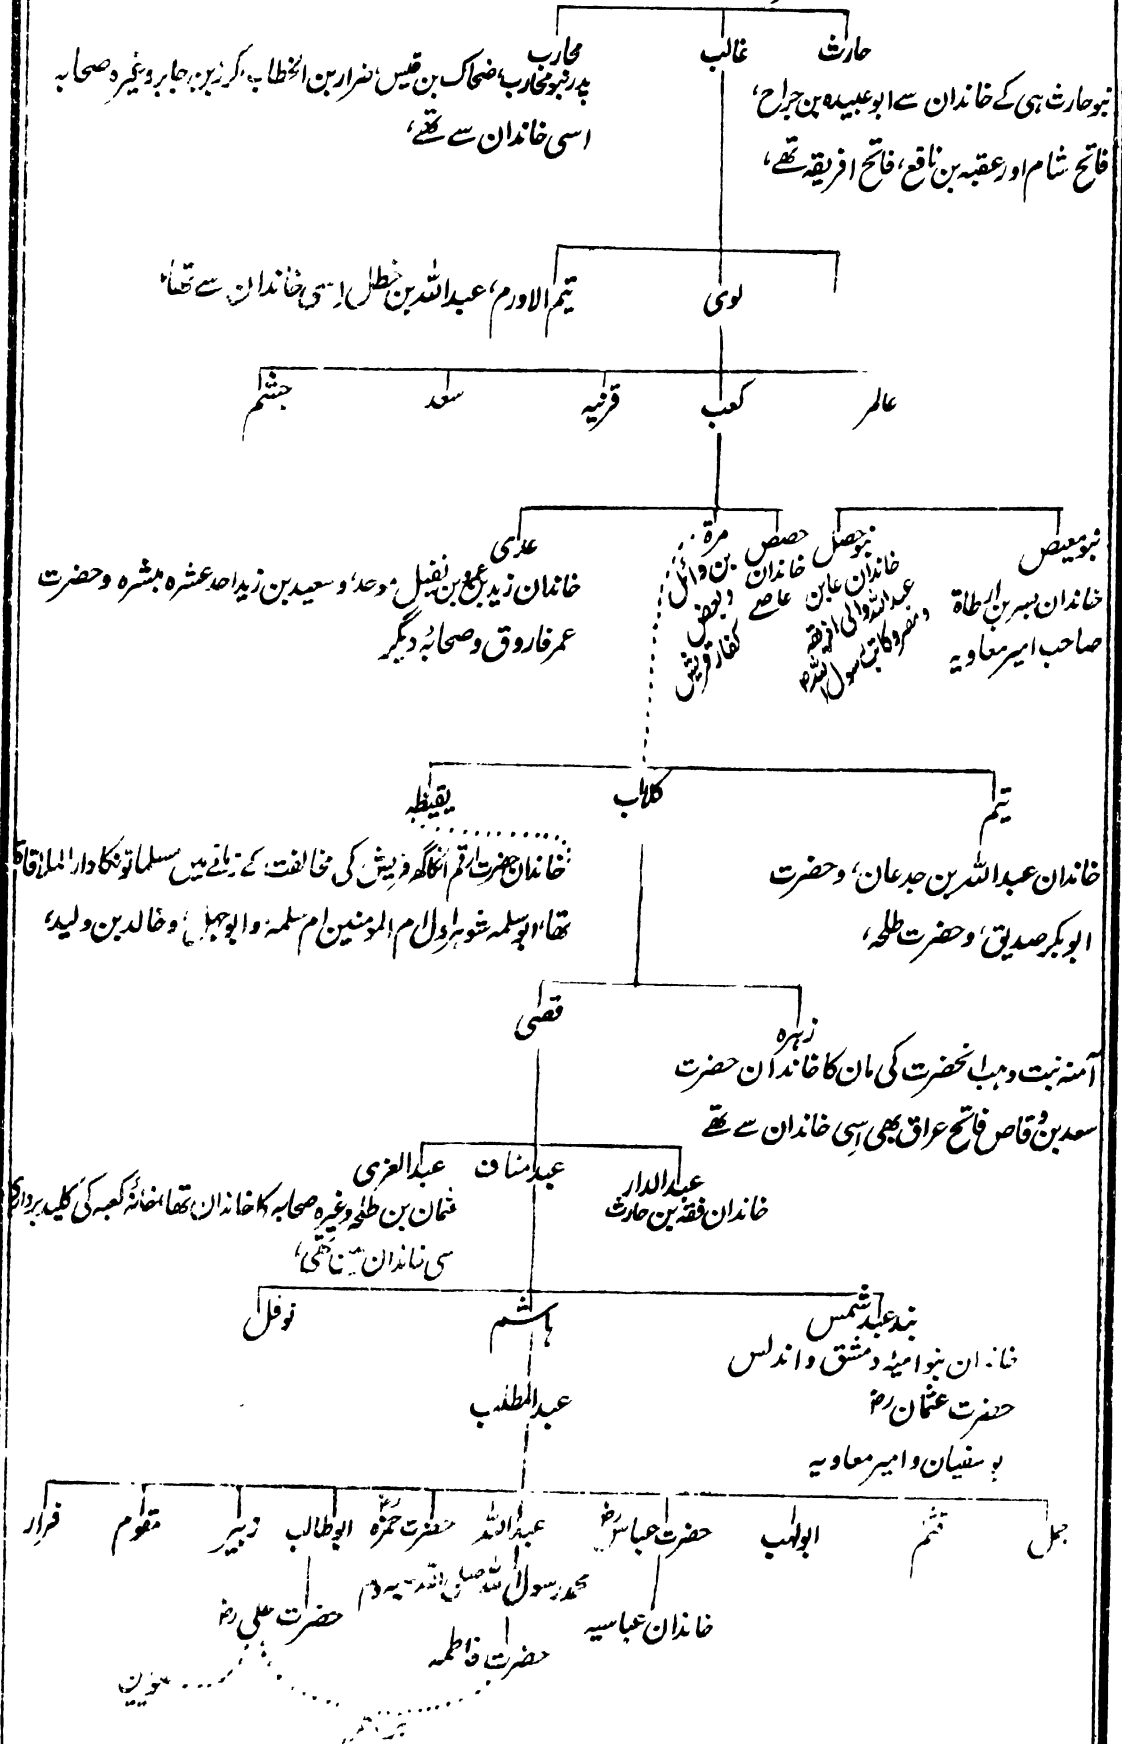 حارث
غالب
محارب
بنو حارث ہی کے خاندان سے ابو عبیدہ بن جراح،
فاتح شام اور عقبہ بن نافع، فاتح افریقہ تھے،
پدر بنو محارب، ضحاک بن قیس، ضرار بن الخطاب، کرز بن جابر وغیرہ صحابہ
اسی خاندان سے تھے،
لوی
تیم الاورم، عبداللہ بن خطل اسی خاندان سے تھا،
عالمر
کعب
قرنیہ
سعد
جشم
بنو معیص
خاندان بسر بن ارطاۃ
صاحب امیر معاویہ
بنو حصل
خاندان عابن
عبداللہ والی افریقہ
و مصر و کاتب رسول اللہ ص
حصص
خاندان
عاصے
مرۃ
بن وائل
و بعض
کفار قریش
عدی
خاندان زید بن عمرو بن نفیل موحد، و سعید بن زید احد عشرہ مبشرہ و حضرت
عمر فاروق و صحابۂ دیگر
تیم
کلاب
یقیظہ
خاندان عبداللہ بن جدعان، و حضرت
ابوبکر صدیق، و حضرت طلحہ،
خاندان حضرت ارقم انکا گھر قریش کی مخالفت کے زمانے میں مسلمانونکا دار الملاقات
تھا، ابو سلمہ شوہر اول ام المومنین ام سلمہ، و ابو جہل، و خالد بن ولید،
زہرہ
قصی
آمنہ بنت وہب انحضرت کی مان کا خاندان حضرت
سعد بن وقاص فاتح عراق بھی اسی خاندان سے تھے
عبدالدار
عبد مناف
عبدالعزی
خاندان فقہ بن حارث
عثمان بن طلحہ وغیرہ صحابہ کا خاندان تھا، خانۂ کعبہ کی کلید برداری
سی خاندان مین تھی،
بند عبد شمس
ہاشم
نوفل
خاندان بنو امیہ دمشق و اندلس
حضرت عثمان رض
بو سفیان و امیر معاویہ
عبدالمطلب
جمل
قثم
ابولہب
حضرت عباس رض
عبداللہ
حضرت حمزہ رض
ابوطالب
زبیر
مقوم
فرار
خاندان عباسیہ
محمد رسول اللہ صلی اللہ علیہ وسلم
حضرت علی رض
حضرت فاطمہ